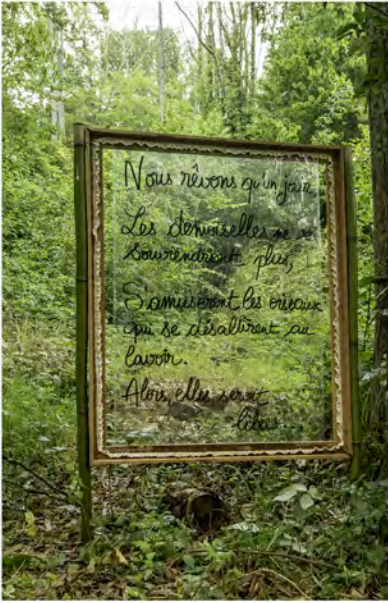 Nous rêvons qu'un jour
Les demoiselles ne se
souviendront plus,
S'amuseront les oiseaux
qui se désaltèrent au
lavoir.
Alors, elles seront
libres